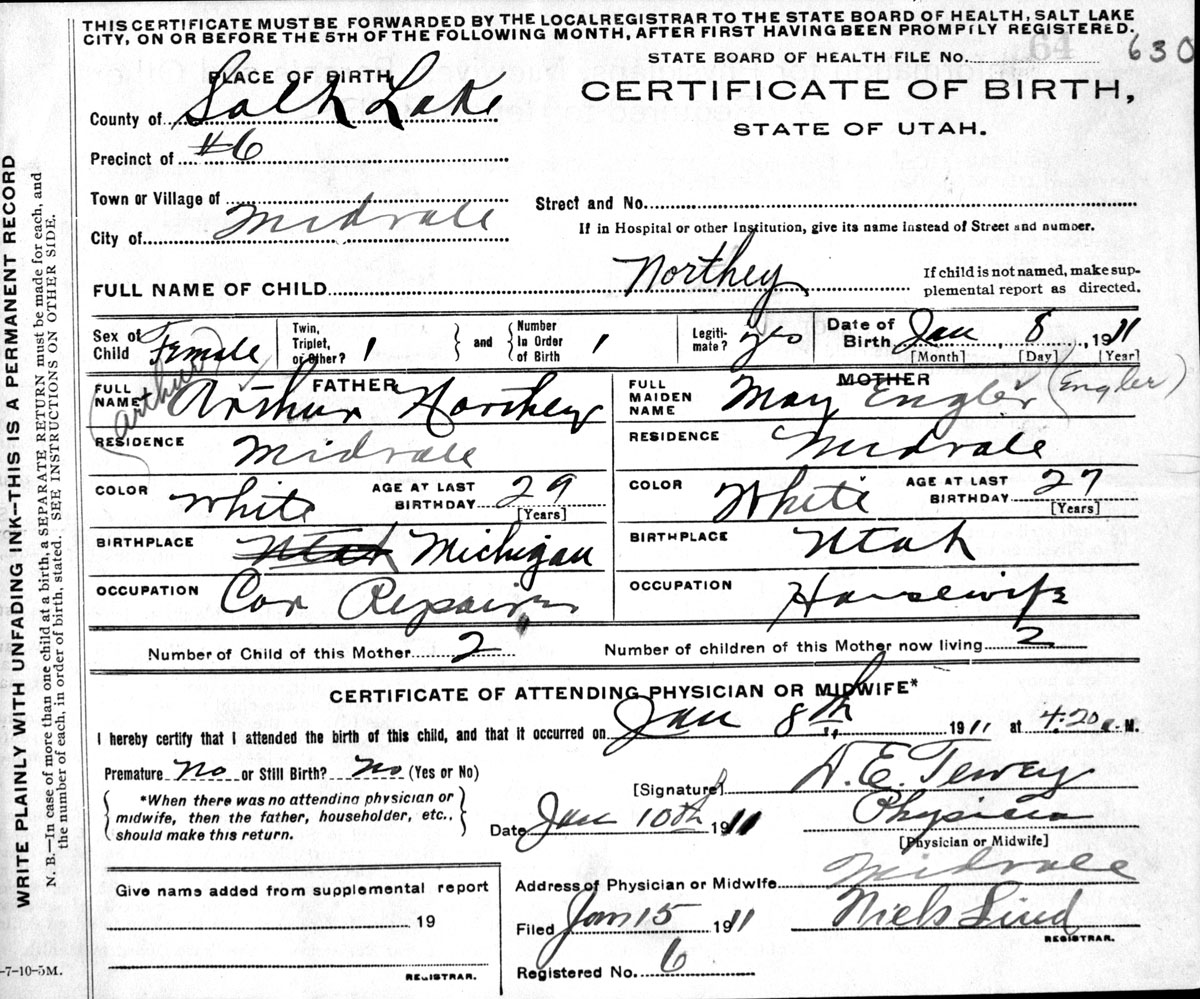 THIS CERTIFICATE MUST BE FORWARDED BY THE LOCAL REGISTRAR TO THE STATE BOARD OF HEALTH, SALT LAKE
CITY, ON OR BEFORE THE 5TH OF THE FOLLOWING MONTH, AFTER FIRST HAVING BEEN PROMPTLY REGISTERED.
STATE BOARD OF HEALTH FILE No. 630
PLACE OF BIRTH
CERTIFICATE OF BIRTH,
STATE OF UTAH.
County of Salt Lake
Precinct of #6
Town or Village of
City of Midvale
Street and No.
If in Hospital or other Institution, give its name instead of Street and number.
FULL NAME OF CHILD Northey
If child is not named, make sup-
plemental report as directed.
Sex of Child Female
Twin, Triplet, or Other? 1
and
Number in Order of Birth 1
Legiti-mate? yes
Date of Birth Jan 8, 1911
[Month] [Day] [Year]
FATHER
FULL NAME Arthur Northey
(arthur)
RESIDENCE Midvale
COLOR White
AGE AT LAST BIRTHDAY 29
[Years]
BIRTHPLACE Utah Michigan
OCCUPATION Car Repairer
MOTHER
FULL MAIDEN NAME May Engler (Engler)
RESIDENCE Midvale
COLOR White
AGE AT LAST BIRTHDAY 27
[Years]
BIRTHPLACE Utah
OCCUPATION Housewife
Number of Child of this Mother 2
Number of children of this Mother now living 2
CERTIFICATE OF ATTENDING PHYSICIAN OR MIDWIFE*
I hereby certify that I attended the birth of this child, and that it occurred on Jan 8th, 1911 at 4:20 a. M.
Premature No or Still Birth? No (Yes or No)
*When there was no attending physician or
midwife, then the father, householder, etc.,
should make this return.
[Signature]
Date Jan 10th 1911
Physician
[Physician or Midwife]
Give name added from supplemental report
19
REGISTRAR.
Address of Physician or Midwife Midvale
Filed Jan 15 1911 Niels Lind
REGISTRAR.
Registered No. 6
-7-10-5M.
WRITE PLAINLY WITH UNFADING INK—THIS IS A PERMANENT RECORD
N. B.—In case of more than one child at a birth, a SEPARATE RETURN must be made for each, and
the number of each, in order of birth, stated. SEE INSTRUCTIONS ON OTHER SIDE.